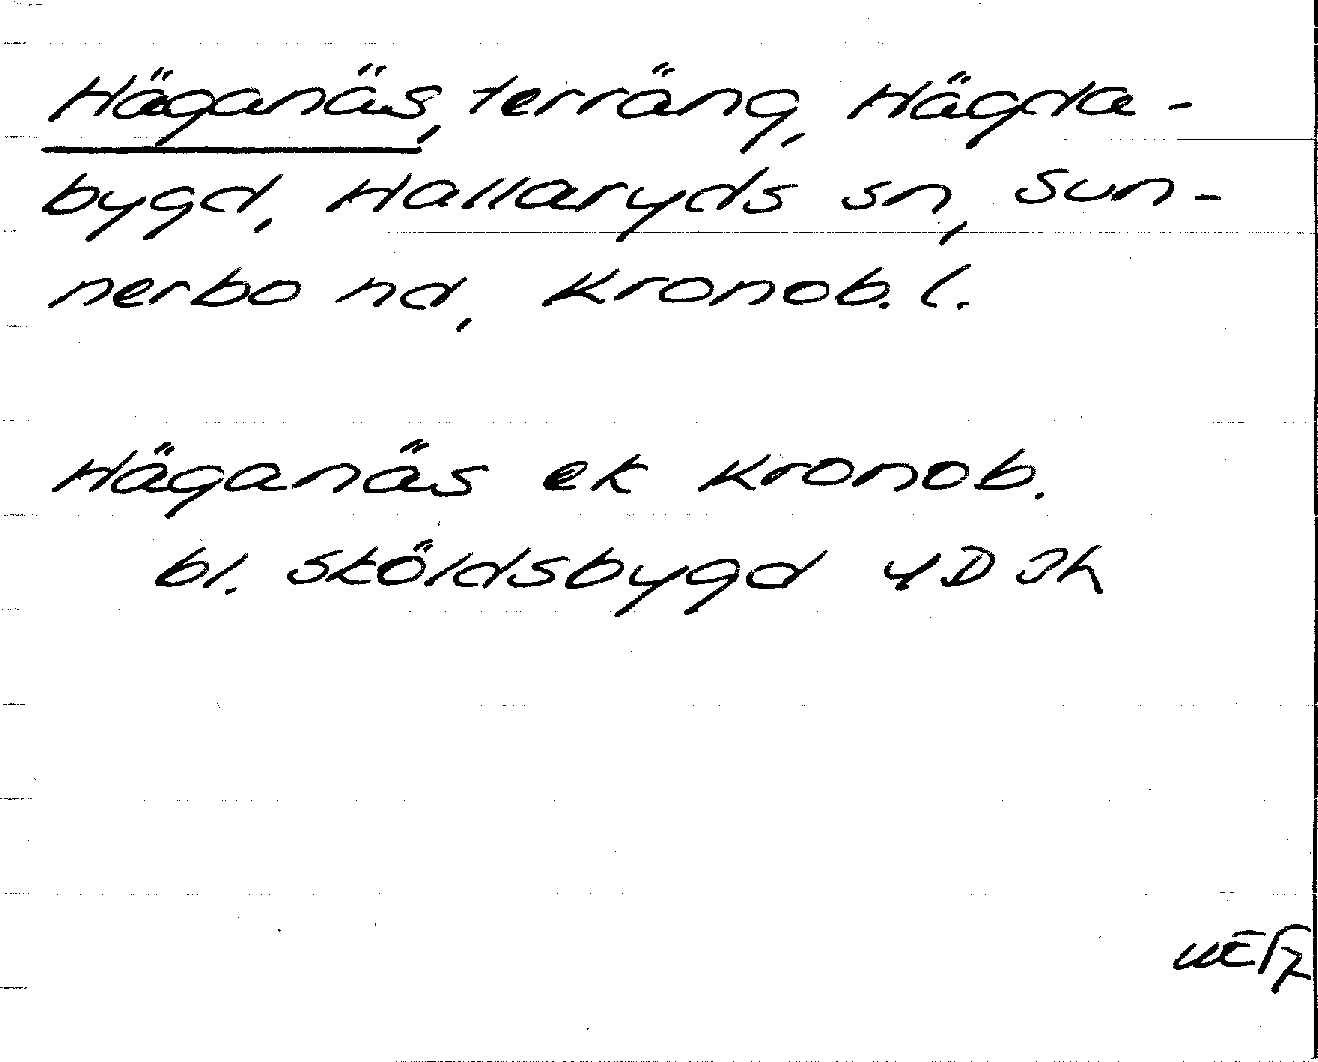 Häganäs, terräng, Hägda-
bygd, Hallaryds sn, Sun-
nerbo hd, Kronob. l.
Häganäs ek Kronob.
bl. Sköldsbygd 4D Ih